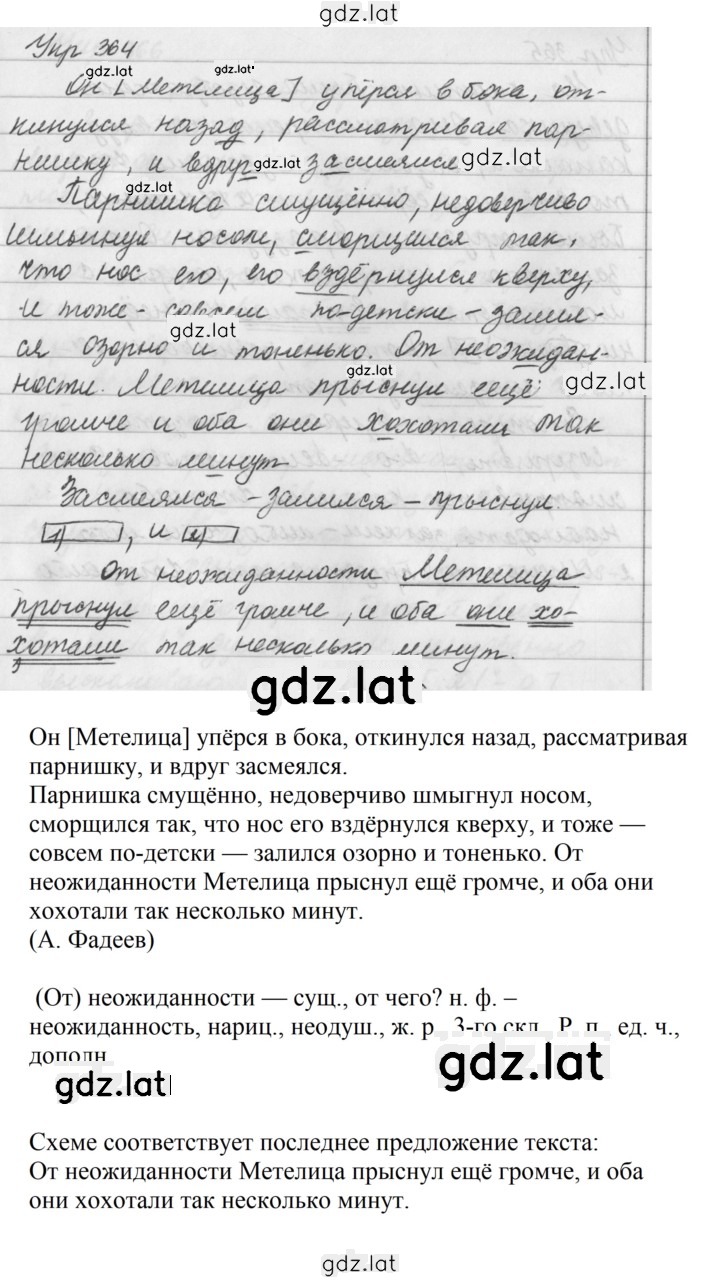 gdz.lat
Упр 364
gdz.lat gdz.lat
Он [Метелица] упёрся в бока, от-
кинулся назад, рассматривая пар-
нишку, и вдруг gdz.lat засмеялся gdz.lat
gdz.lat
Парнишка смущённо, недоверчиво
шмыгнул носом, сморщился так,
что нос его, его вздёрнулся кверху,
и тоже - совсем по-детски - залил-
gdz.lat
ся озорно и тоненько. От неожидан-
gdz.lat
ности. Метелица прыснул ещё gdz.lat
громче и оба они хохотали так
несколько минут
Засмеялся - залился - прыснул.
1) , и 2)
От неожиданности Метелица
прыснул ещё громче, и оба они хо-
хотали так несколько минут.
gdz.lat
Он [Метелица] упёрся в бока, откинулся назад, рассматривая
парнишку, и вдруг засмеялся.
Парнишка смущённо, недоверчиво шмыгнул носом,
сморщился так, что нос его вздёрнулся кверху, и тоже —
совсем по-детски — залился озорно и тоненько. От
неожиданности Метелица прыснул ещё громче, и оба они
хохотали так несколько минут.
(А. Фадеев)
(От) неожиданности — сущ., от чего? н. ф. –
неожиданность, нариц., неодуш., ж. р., 3-го скл., Р. п., ед. ч.,
дополн
gdz.lat
gdz.lat
Схеме соответствует последнее предложение текста:
От неожиданности Метелица прыснул ещё громче, и оба
они хохотали так несколько минут.
gdz.lat